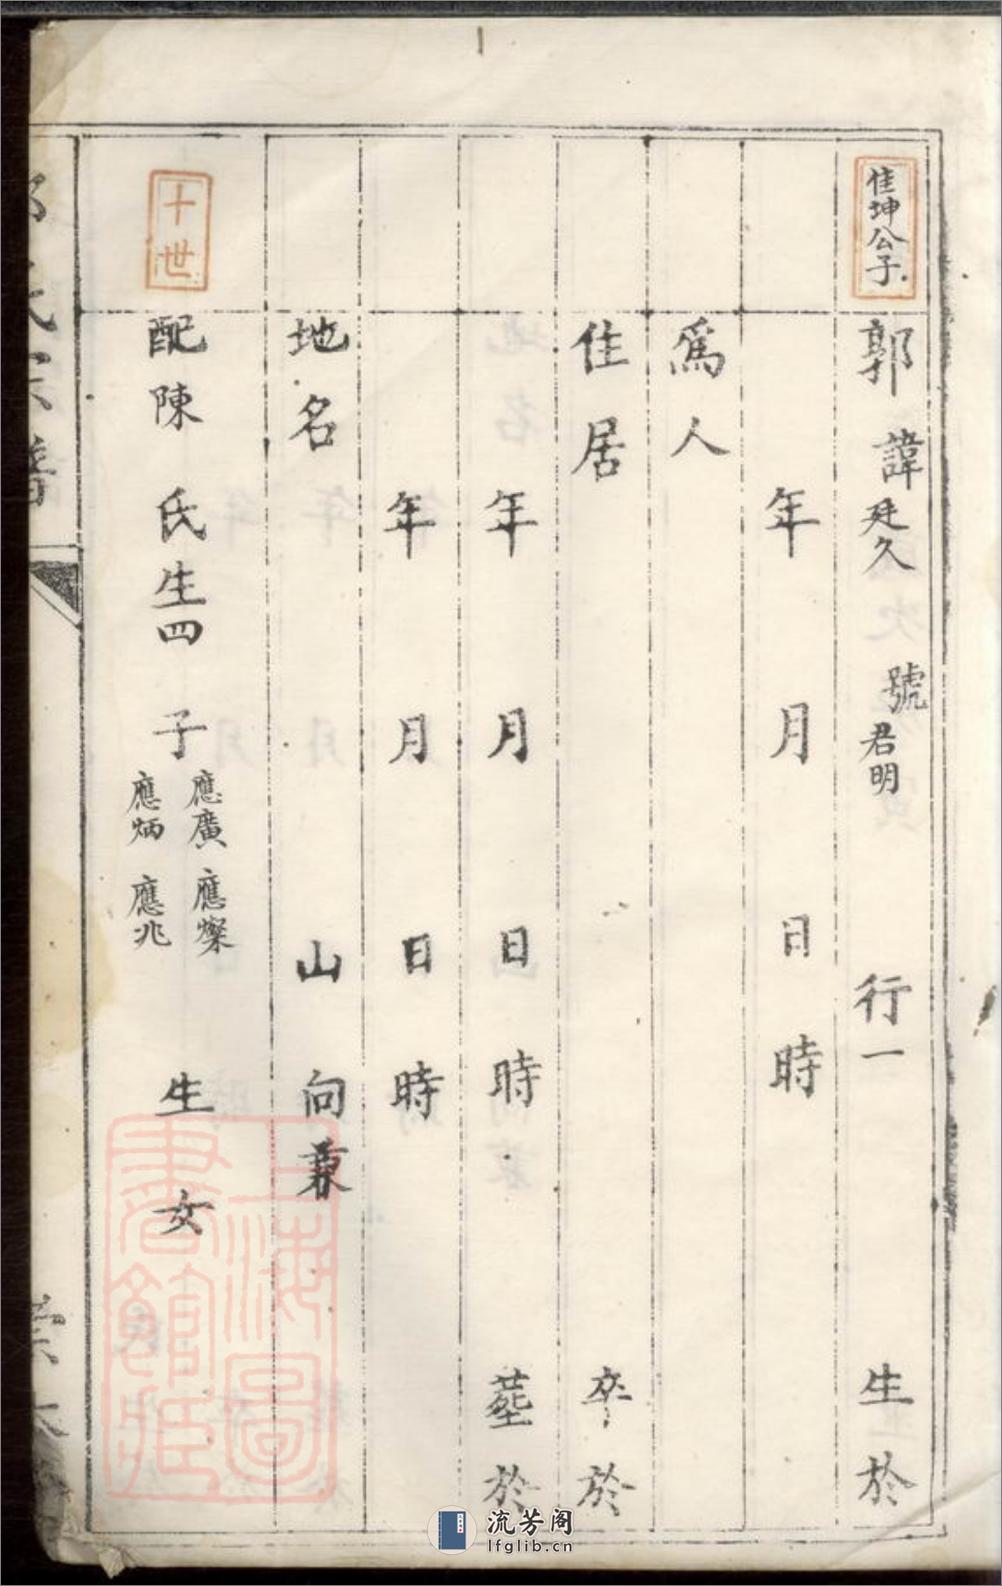 佳坤公子
郭 諱廷久 號君明 行一 生於
年 月 日 時
爲人
住居 卒於
年 月 日 時 塟於
年 月 日 時
地名 山 向兼
十世
配陳 氏生四 子 應廣 應燦
應炳 應兆 生 女
氏宗譜
上海圖
書館藏
流芳阁
lfglib.cn